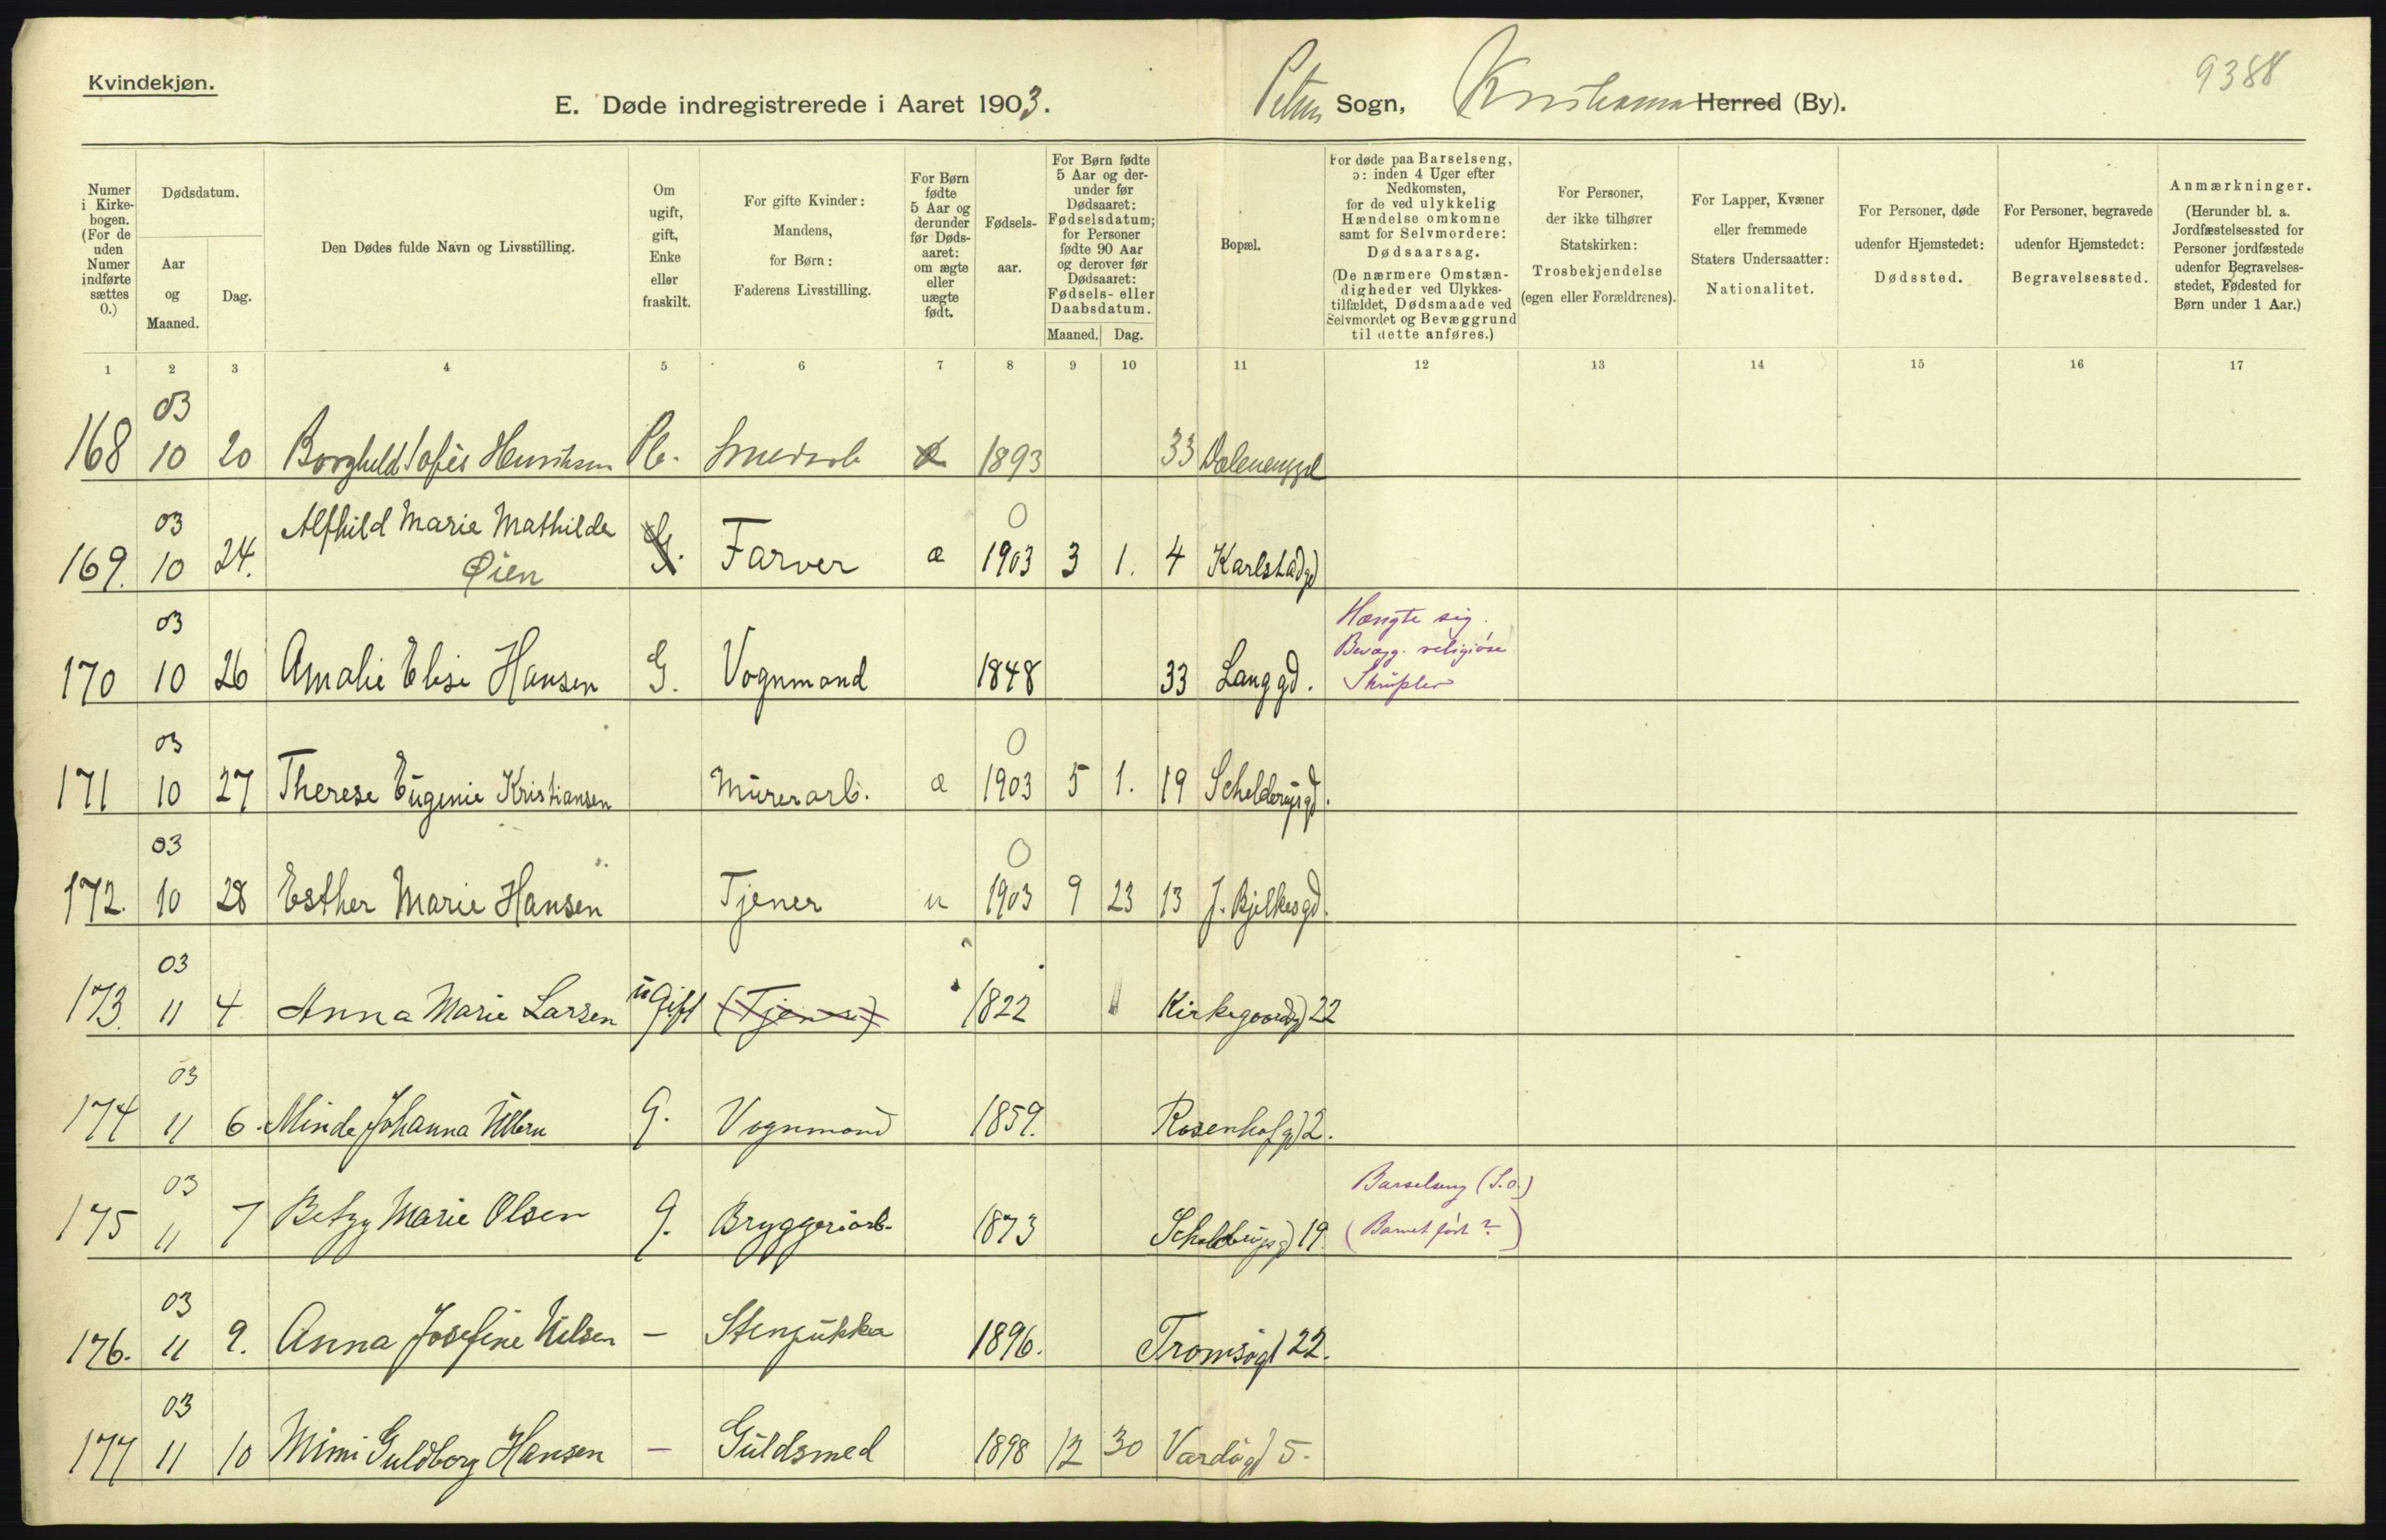 Kvindekjøn.
E. Døde indregistrerede i Aaret 1903.
Petrus Sogn, Kristiania Herred (By).
9388
Numer i Kirke-bogen. (For de uden Numer indførte sættes 0.)
Dødsdatum.
Aar og Maaned.
Dag.
Den Dødes fulde Navn og Livsstilling.
Om ugift, gift, Enke eller fraskilt.
For gifte Kvinder: Mandens, for Børn: Faderens Livsstilling.
For Børn fødte 5 Aar og derunder før Døds-aaret: om ægte eller uægte født.
Fødsels-aar.
For Børn fødte 5 Aar og der-under før Dødsaaret: Fødselsdatum; for Personer fødte 90 Aar og derover før Dødsaaret: Fødsels- eller Daabsdatum.
Maaned. Dag.
Bopæl.
For døde paa Barselseng, ɔ: inden 4 Uger efter Nedkomsten, for de ved ulykkelig Hændelse omkomne samt for Selvmordere: Dødsaarsag. (De nærmere Omstæn-digheder ved Ulykkes-tilfældet, Dødsmaade ved Selvmordet og Bevæggrund til dette anføres.)
For Personer, der ikke tilhører Statskirken: Trosbekjendelse (egen eller Forældrenes).
For Lapper, Kvæner eller fremmede Staters Undersaatter: Nationalitet.
For Personer, døde udenfor Hjemstedet: Dødssted.
For Personer, begravede udenfor Hjemstedet: Begravelsessted.
Anmærkninger. (Herunder bl. a. Jordfæstelsessted for Personer jordfæstede udenfor Begravelses-stedet, Fødested for Børn under 1 Aar.)
1 2 3 4 5 6 7 8 9 10 11 12 13 14 15 16 17
03
168 10 20 Borghild Sofie Henriksen Pl. Smedarb æ 1893 33 Dælenenggd
03 Alfhild Marie Mathilde 0
169. 10 24. Øien G. Farver æ 1903 3 1. 4 Karlstadgd
03 Hængte sig.
Bevægg. religiøse
170 10 26 Amalie Elise Hansen G. Vognmand 1848 33 Langgd. Skrupler
03 0
171 10 27 Therese Eugenie Kristiansen Murerarb. æ 1903 5 1. 19 Schelderupsgd.
03 0
172. 10 28 Esther Marie Hansen Tjener u 1903 9 23 13 J. Bjelkesgd.
03
173. 11 4 Anna Marie Larsen ugift (Tjener) 1822 Kirkegaardgd 22
03
174 11 6. Minda Johanna Ullern G. Vognmand 1859. Rosenhofgd 2.
03 Barselseng (S.O.)
175 11 7 Betzy Marie Olsen g. Bryggeriarb. 1873 Schelderupsgd 19. (Barnet født?)
03
176. 11 9. Anna Josefine Nilsen — Stenpukker 1896. Tromsøgd 22.
03
177 11 10 Mimi Guldborg Hansen — Guldsmed 1898 12 30 Vardøgd 5.